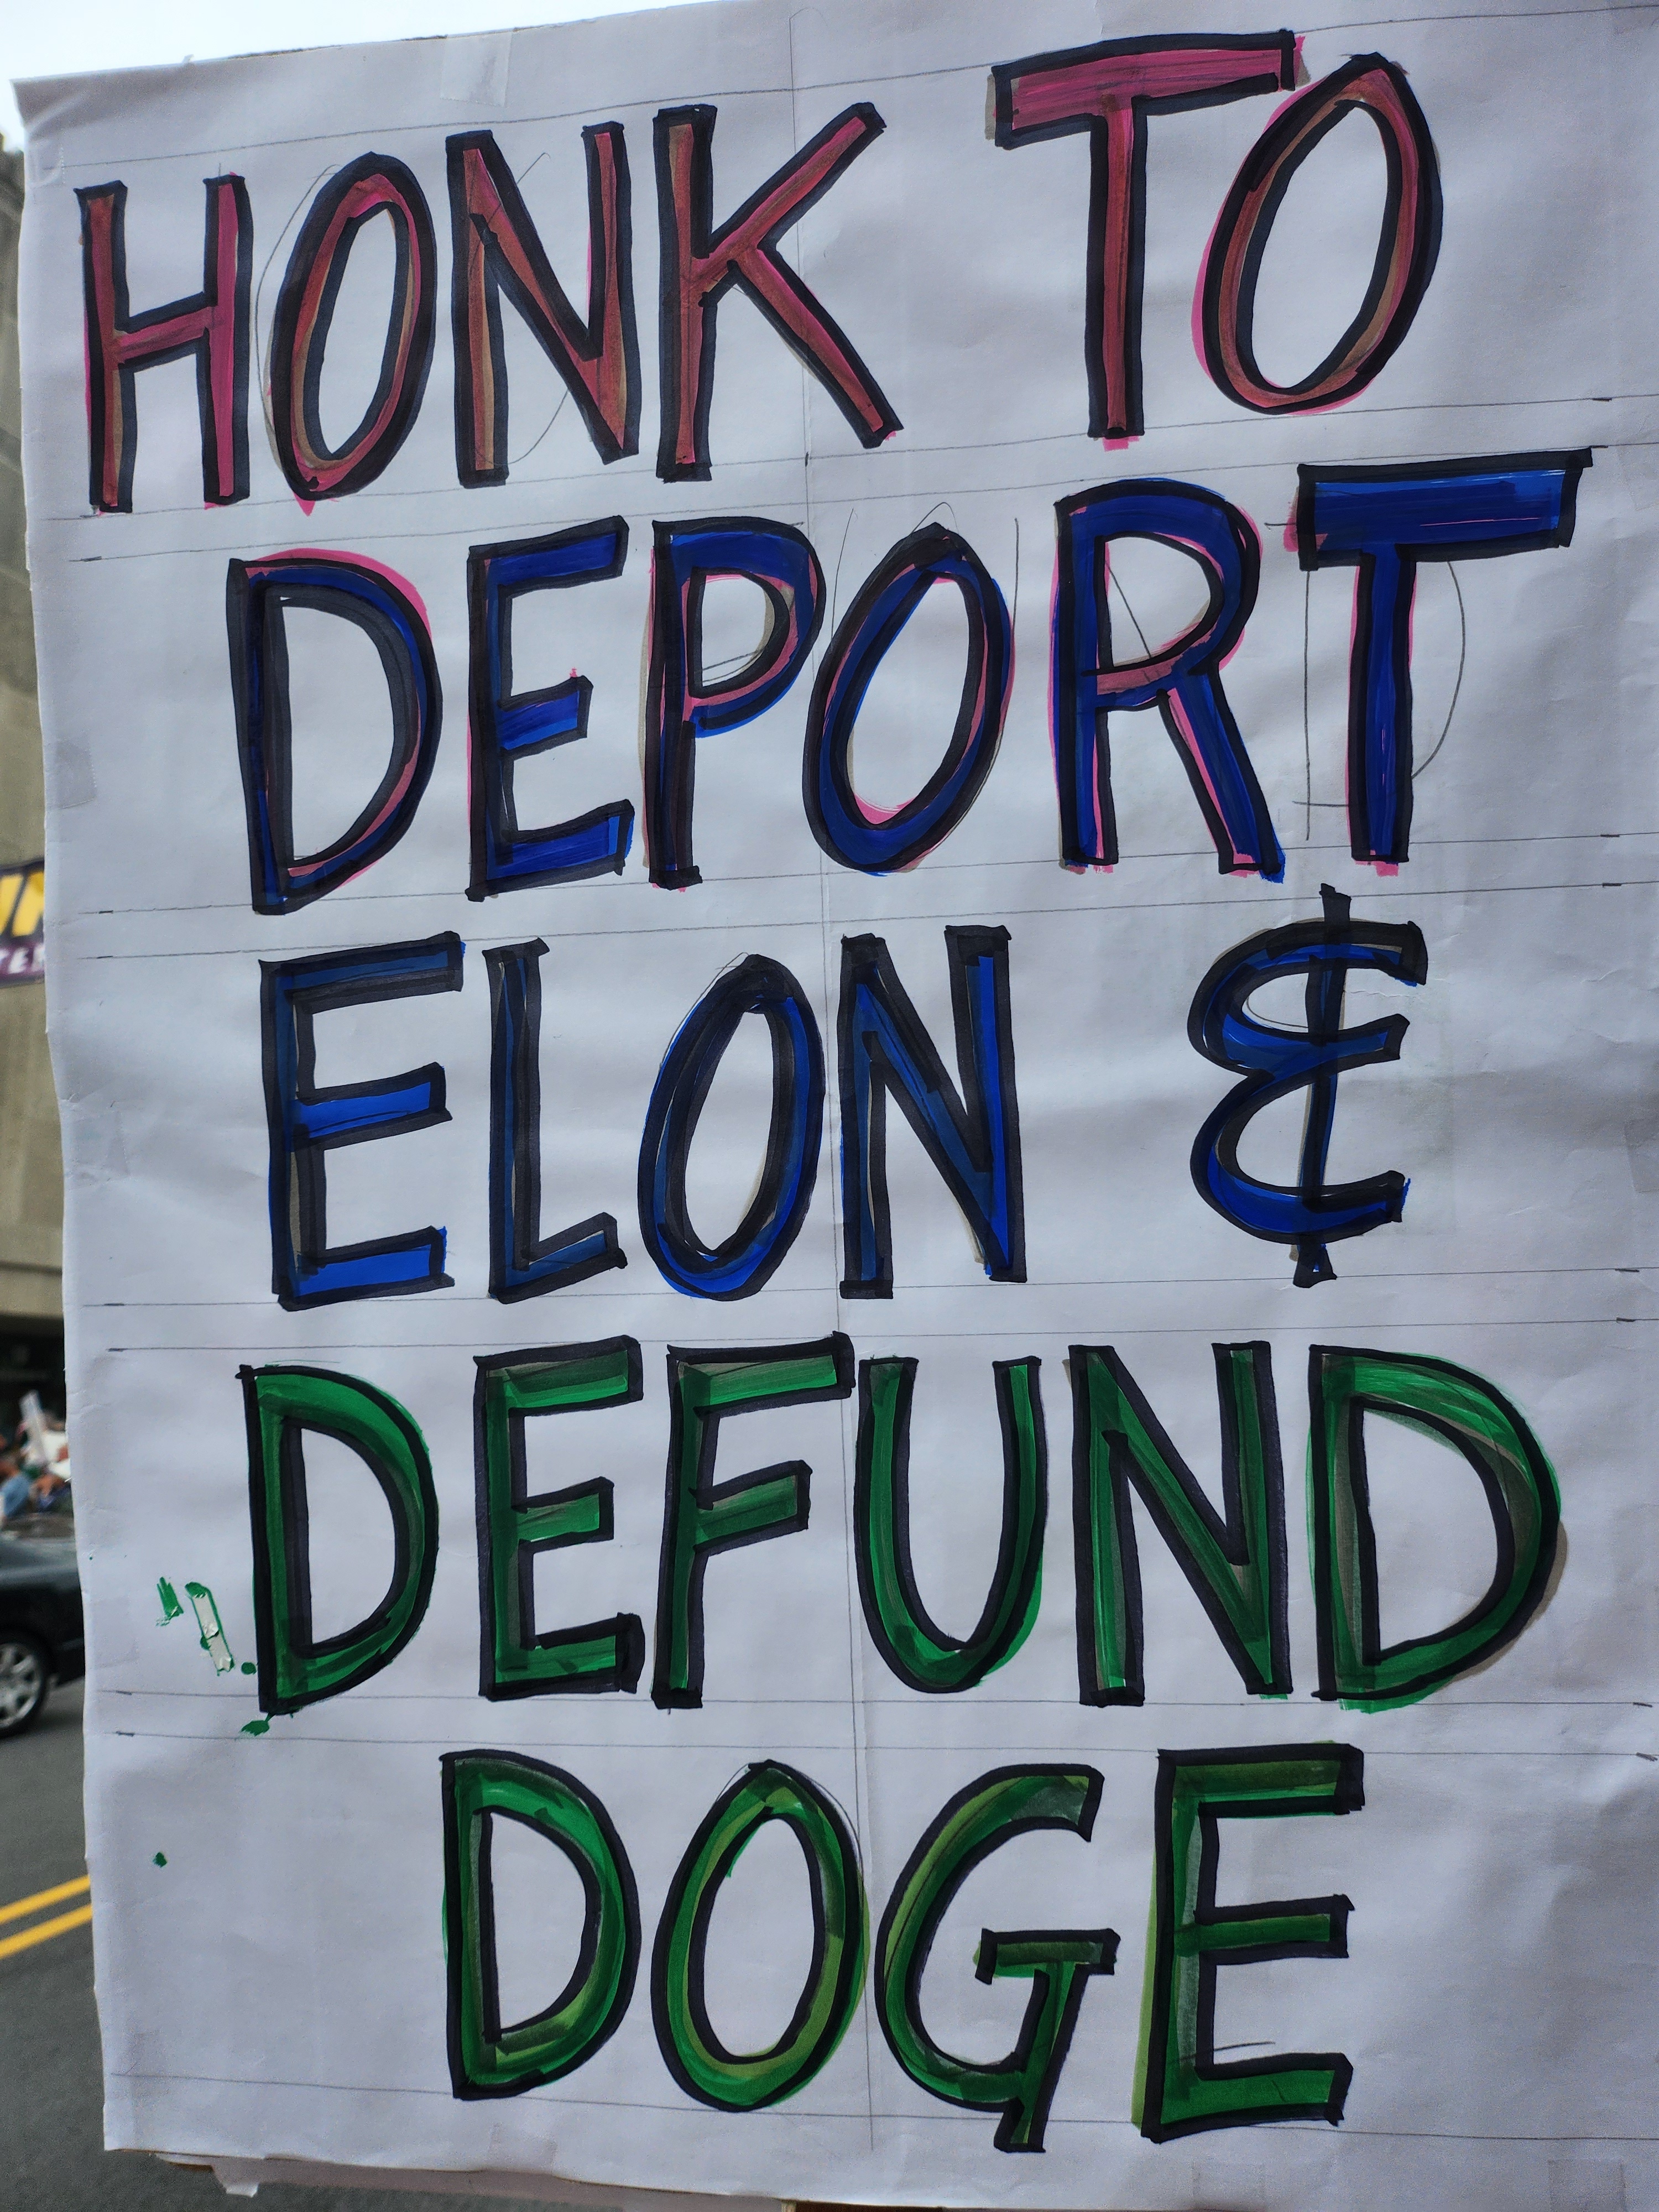 HONK TO
DEPORT
ELON &
DEFUND
DOGE